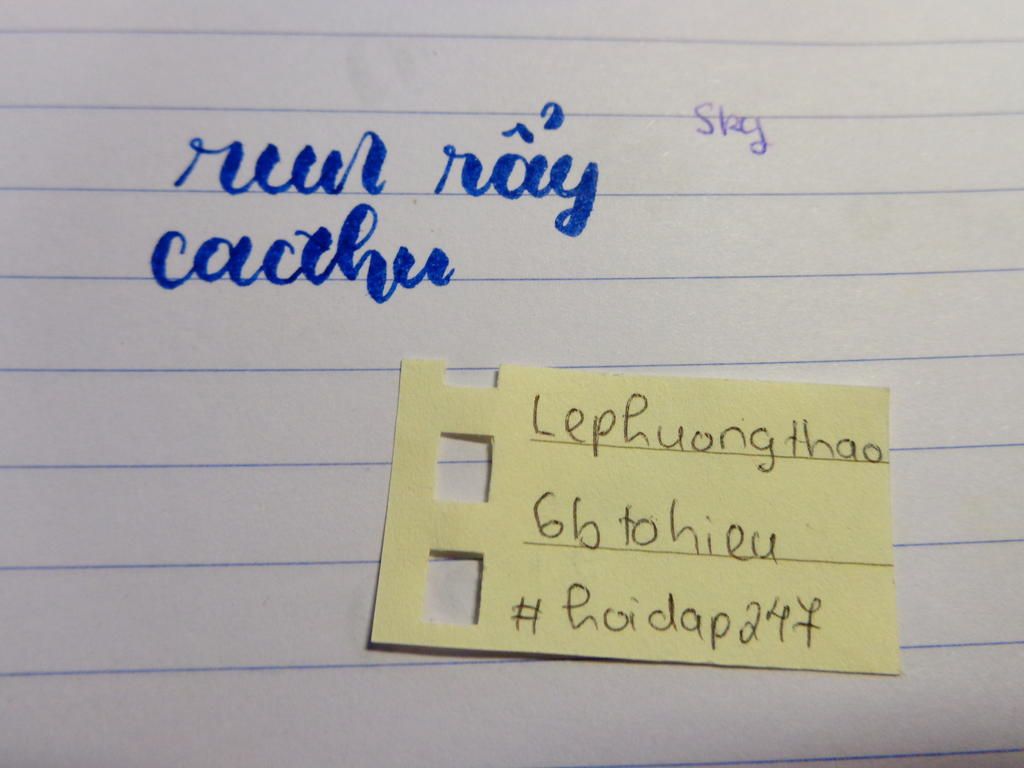 run rẩy
Sky
cacthu
Lephuongthao
6b tohieu
# hoidap247